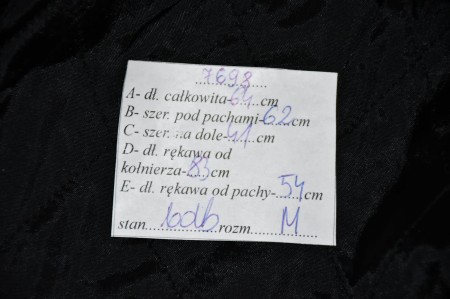 7698
A- dł. całkowita-64 cm
B- szer. pod pachami-62 cm
C- szer. na dole-41 cm
D- dł. rękawa od
kołnierza-83 cm
E- dł. rękawa od pachy-54 cm
stan bdb rozm M